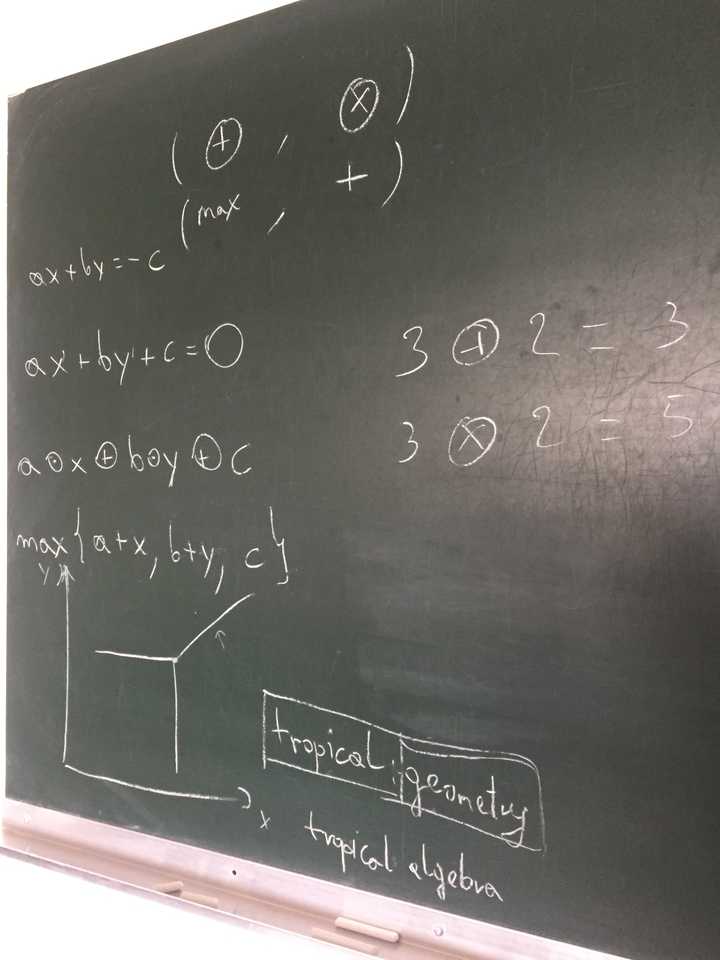 (⊕, ⊗)
(max, +)
ax+by=-c
ax+by+c=0
3 ⊕ 2 = 3
3 ⊗ 2 = 5
a⊙x⊕b⊙y⊕c
max{a+x, b+y, c}
y
x
tropical geometry
tropical algebra